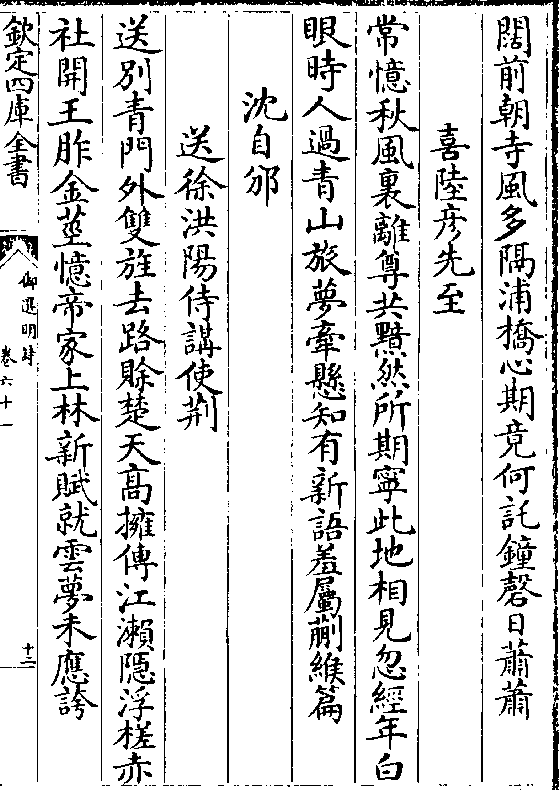 闊前朝寺風多隔浦橋心期竟何託鐘磬日蕭蕭
喜陸彦先至
常憶秋風裏離尊共黯然所期寧此地相見忽經年白
眼時人過青山旅夢牽懸知有新語羞屬蒯緱篇
沈自邠
送徐洪陽侍講使荆
送別青門外雙旌去路賒楚天高擁傳江瀨隠浮槎赤
社開王胙金莖憶帝家上林新賦就雲夢未應誇
欽定四庫全書
御選明詩
卷六十一
十二